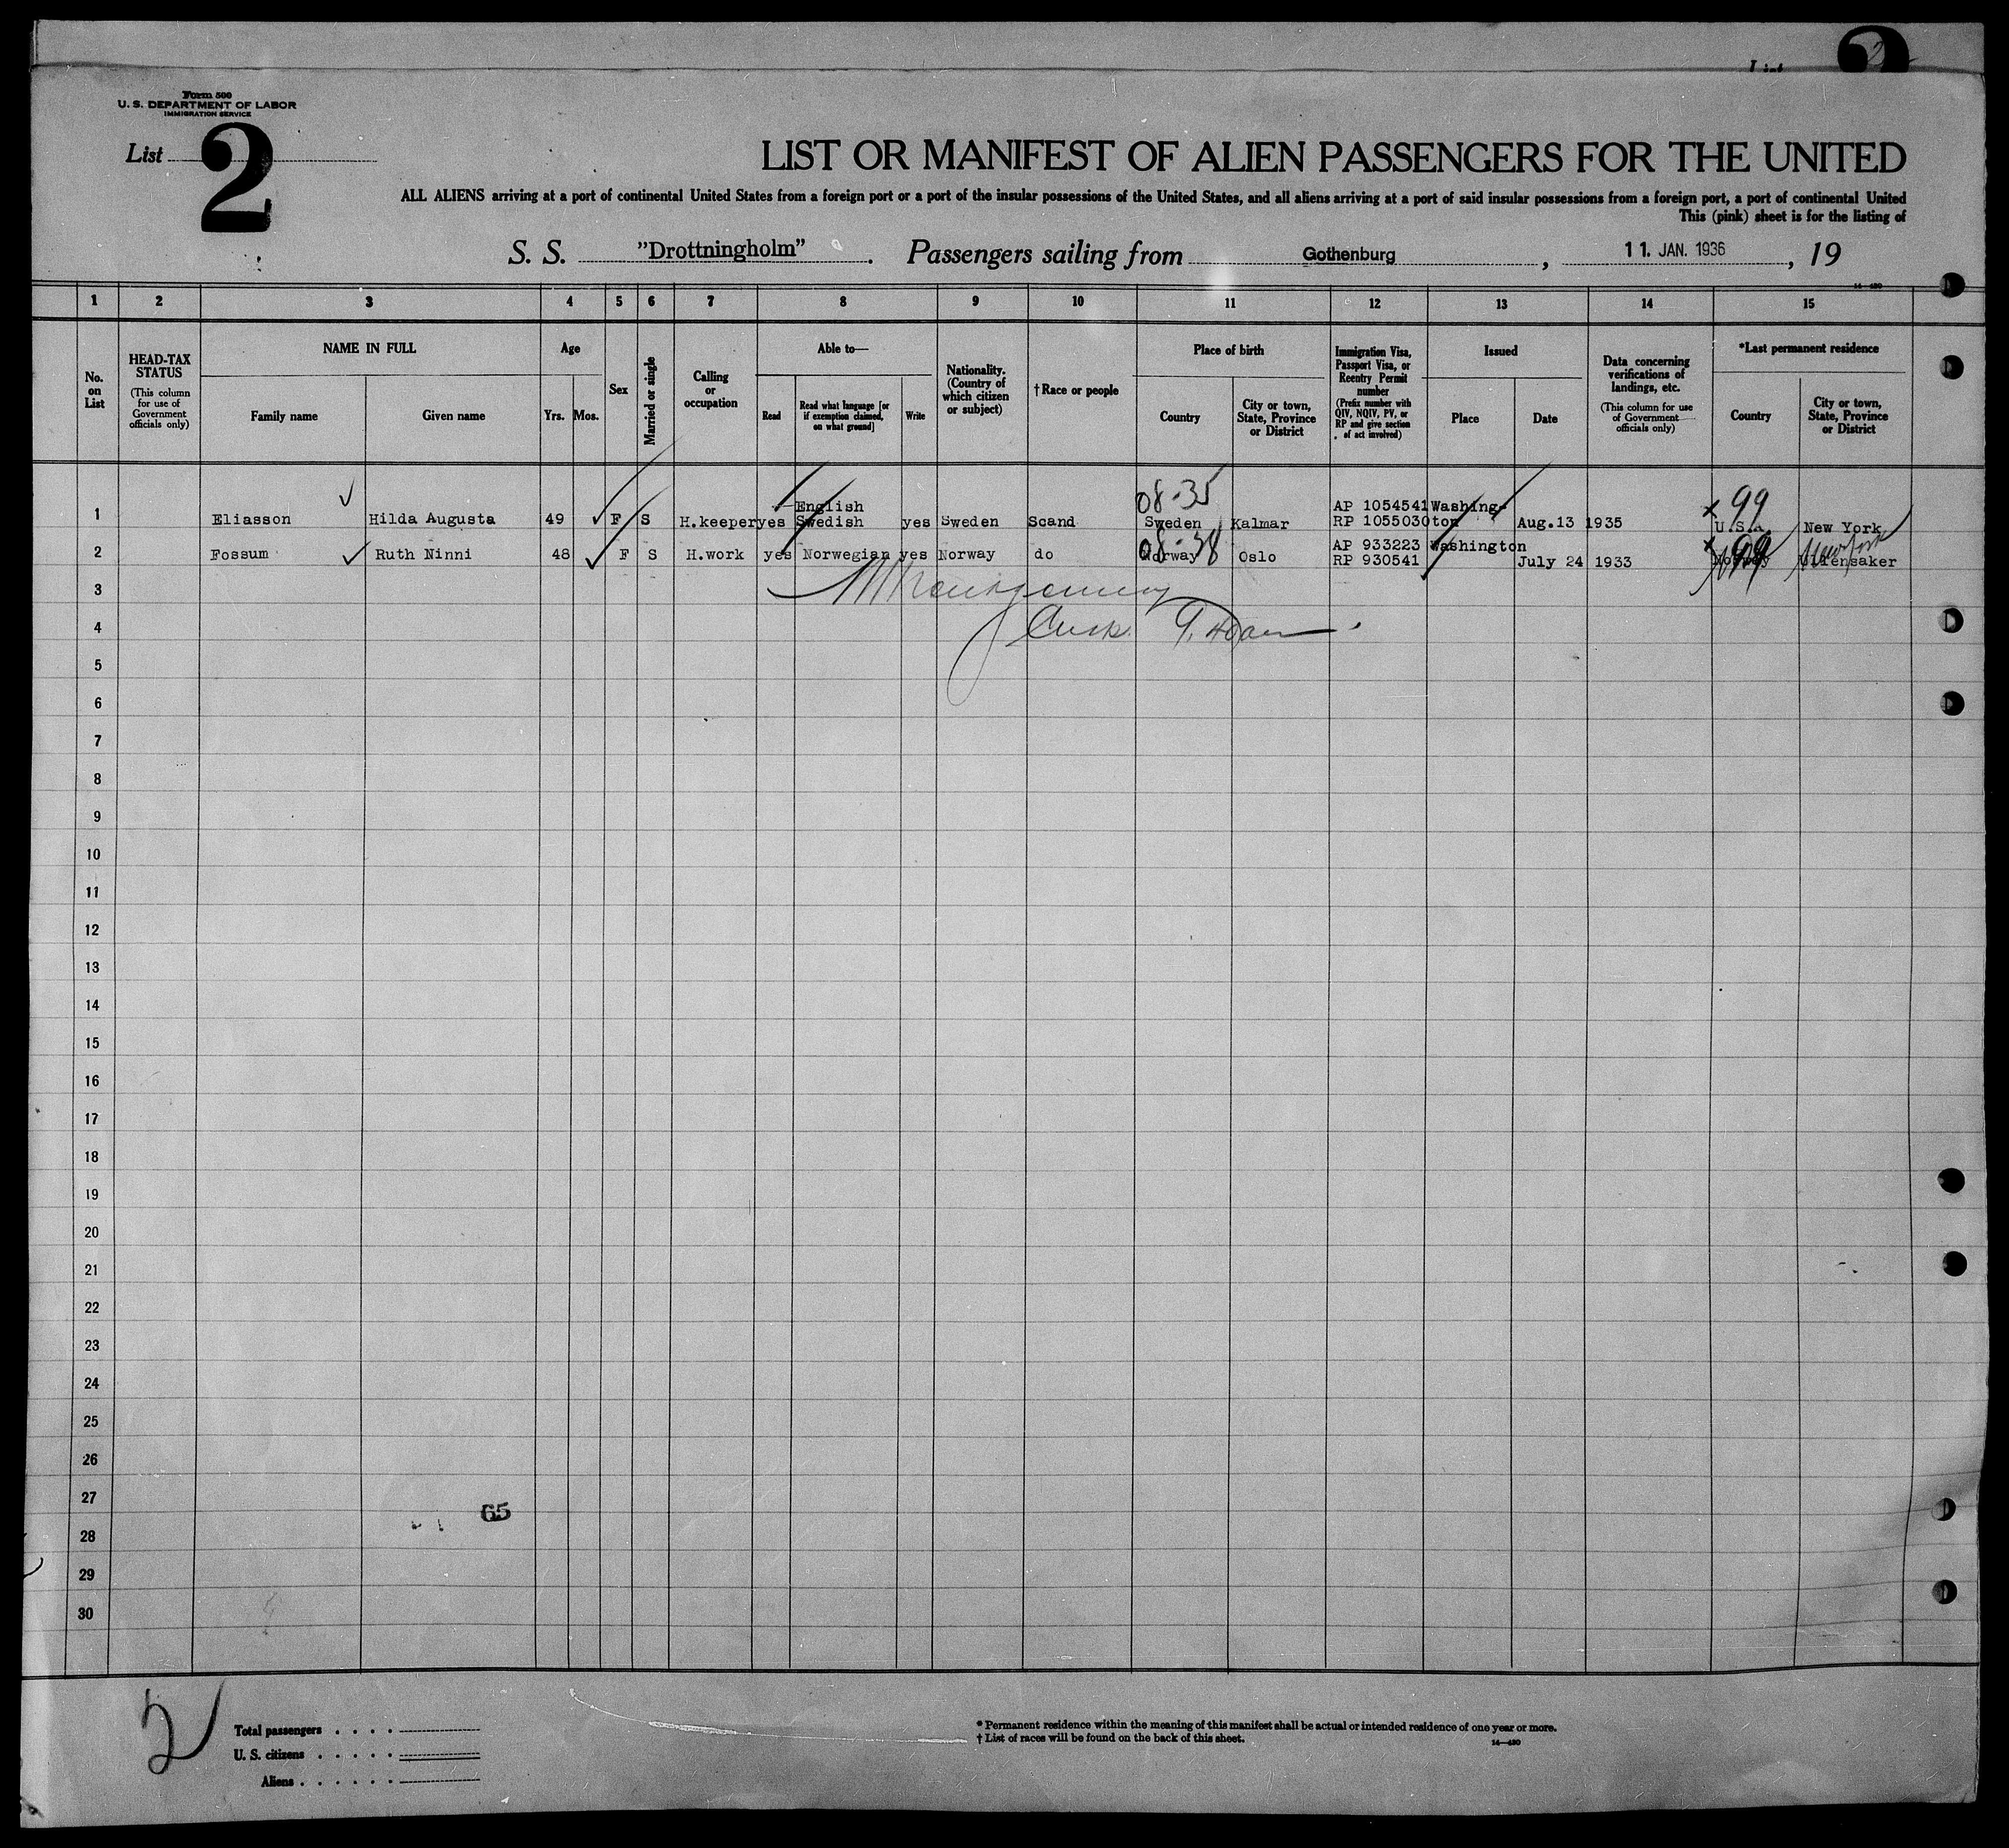 2
Form 500
U. S. DEPARTMENT OF LABOR
IMMIGRATION SERVICE
List 2
LIST OR MANIFEST OF ALIEN PASSENGERS FOR THE UNITED
ALL ALIENS arriving at a port of continental United States from a foreign port or a port of the insular possessions of the United States, and all aliens arriving at a port of said insular possessions from a foreign port, a port of continental United
This (pink) sheet is for the listing of
S. S. "Drottningholm". Passengers sailing from Gothenburg, 11. JAN. 1936, 19
14—480
1 2 3 4 5 6 7 8 9 10 11 12 13 14 15
No. on List
HEAD-TAX STATUS
(This column for use of Government officials only)
NAME IN FULL
Family name
Given name
Age
Yrs.
Mos.
Sex
Married or single
Calling or occupation
Able to—
Read
Read what language [or if exemption claimed, on what ground]
Write
Nationality. (Country of which citizen or subject)
†Race or people
Place of birth
Country
City or town, State, Province or District
Immigration Visa, Passport Visa, or Reentry Permit number
(Prefix number with QIV, NQIV, PV, or RP and give section of act involved)
Issued
Place
Date
Data concerning verifications of landings, etc.
(This column for use of Government officials only)
*Last permanent residence
Country
City or town, State, Province or District
08-35
x 99
English AP 1054541 Washing-
1 Eliasson Hilda Augusta 49 F S H.keeper yes Swedish yes Sweden Scand Sweden Kalmar RP 1055030 ton Aug.13 1935 U.S.A. New York
08-38
x 99 New York
2 Fossum Ruth Ninni 48 F S H.work yes Norwegian yes Norway do Norway Oslo AP 933223 Washington
RP 930541 July 24 1933 Norway Ullensaker
3
4
5
6
7
8
9
10
11
12
13
14
15
16
17
18
19
20
21
22
23
24
25
26
27
65
28
29
30
2
Total passengers . . . .
U. S. citizens . . . . .
Aliens . . . . . .
* Permanent residence within the meaning of this manifest shall be actual or intended residence of one year or more.
† List of races will be found on the back of this sheet.
14—480